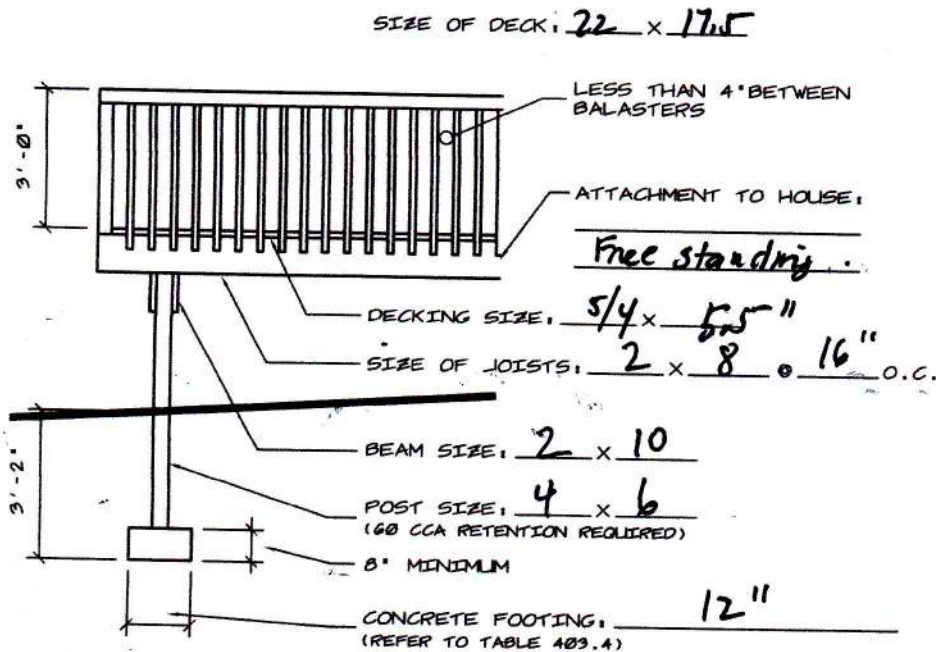 SIZE OF DECK: 22 x 17.5
LESS THAN 4" BETWEEN
BALASTERS
3'-0"
ATTACHMENT TO HOUSE:
Free standing.
DECKING SIZE: 5/4 x 5.5"
SIZE OF JOISTS: 2 x 8 @ 16" O.C.
BEAM SIZE: 2 x 10
3'-2"
POST SIZE: 4 x 6
(60 CCA RETENTION REQUIRED)
8" MINIMUM
CONCRETE FOOTING: 12"
(REFER TO TABLE 403.4)